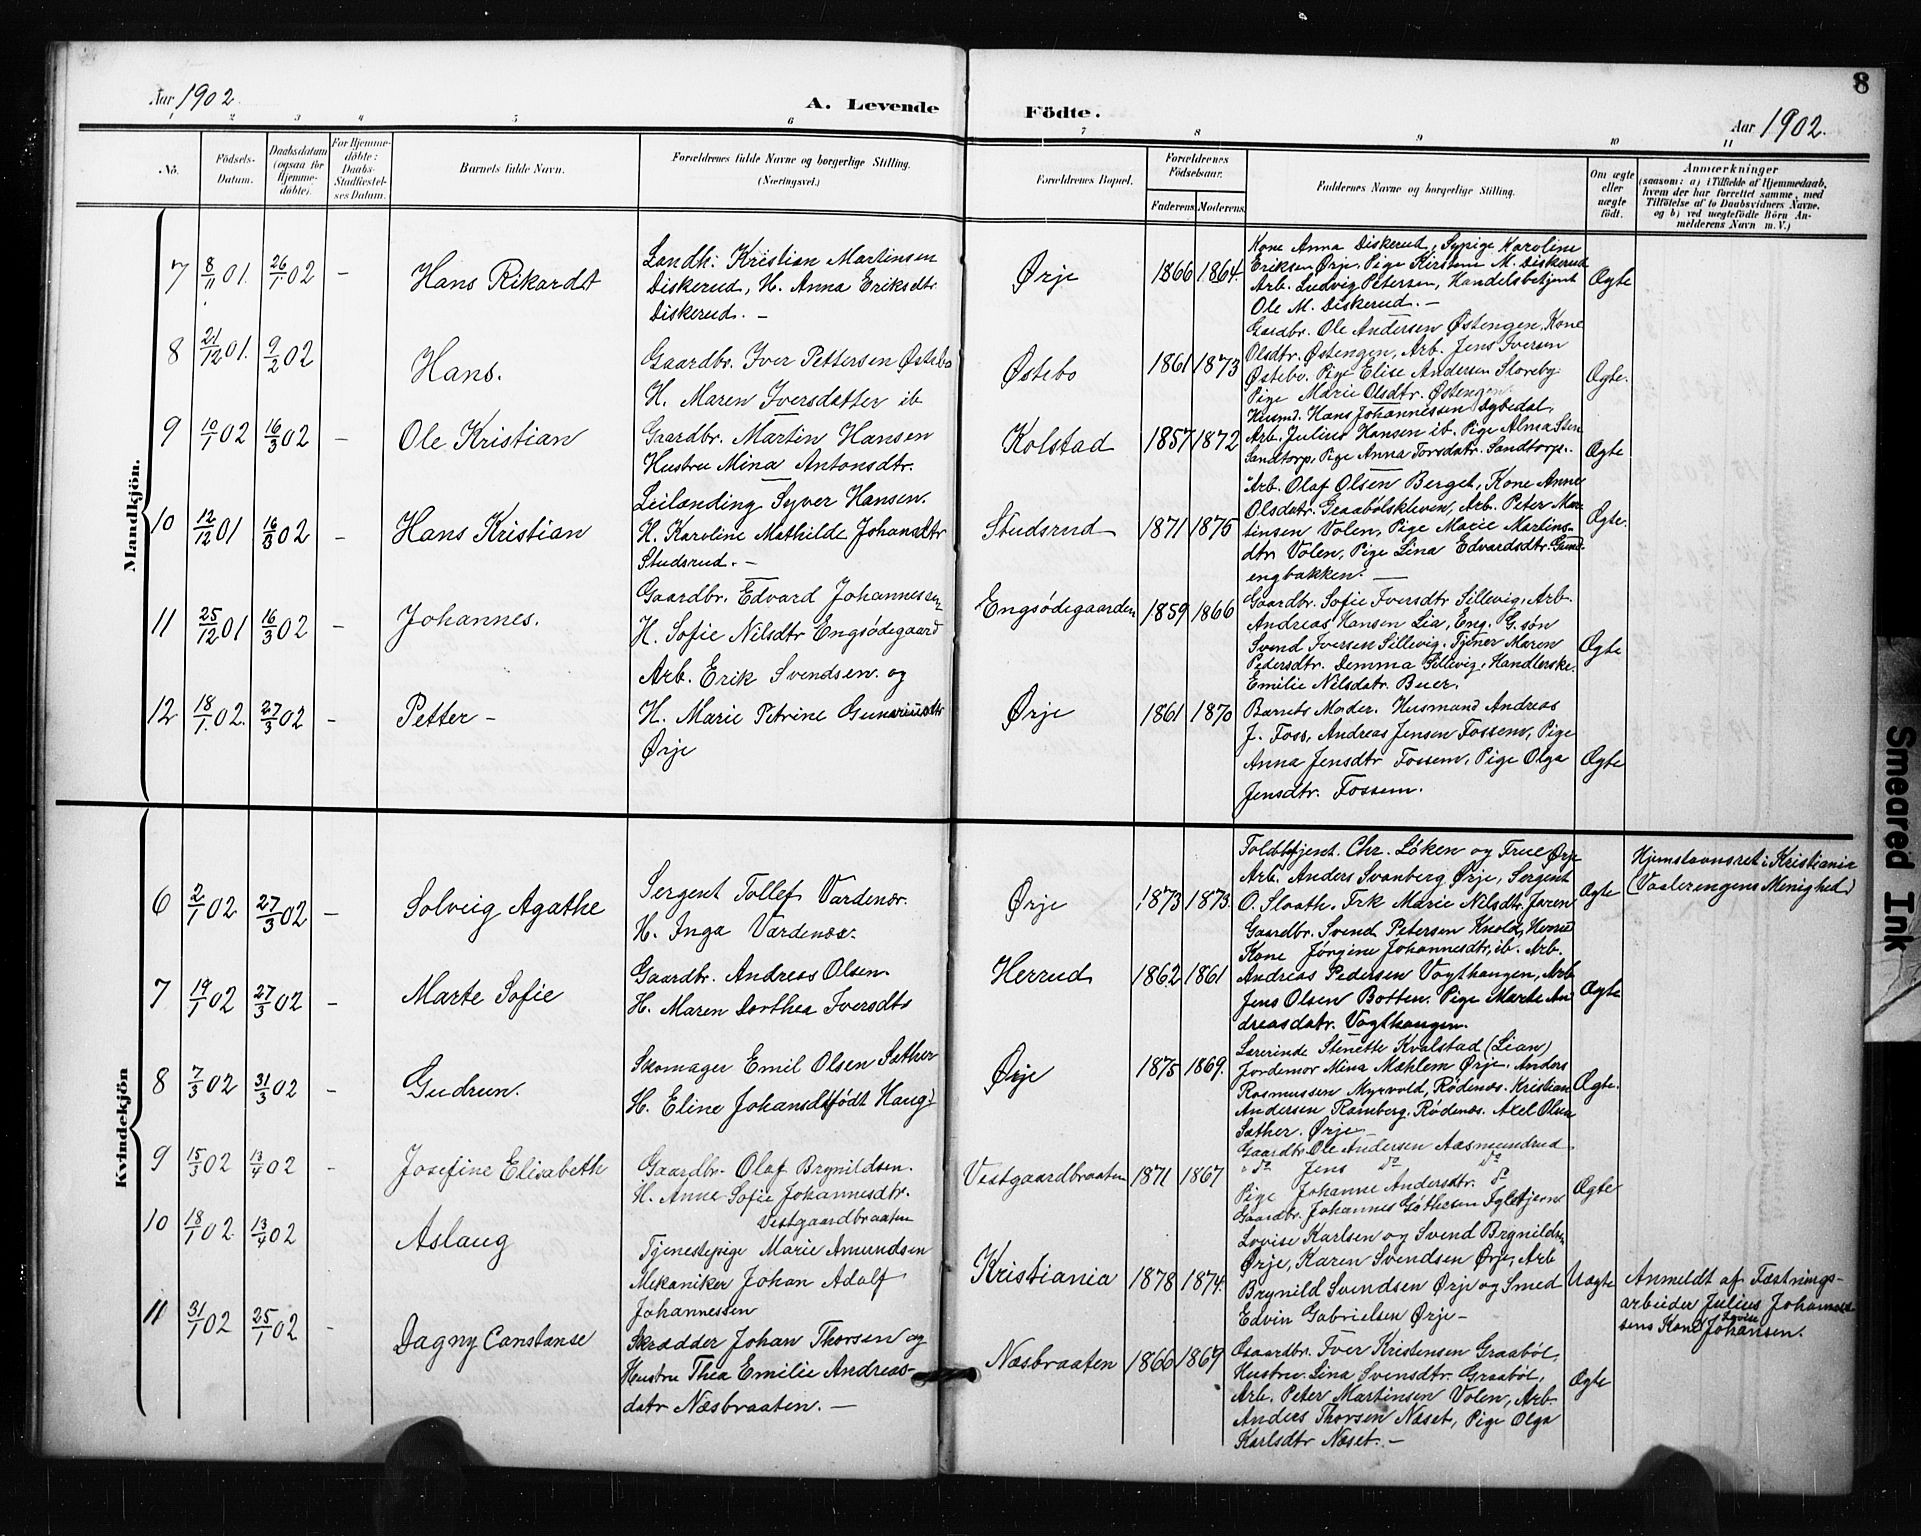 Aar 1902.
A. Levende Födte.
Aar 1902.
8
1 2 3 4 5 6 7 8 9 10 11
No.
Födsels-Datum.
Daabsdatum (ogsaa for Hjemme-döbte).
For Hjemme-döbte: Daabs-Stadfæstel-ses Datum.
Barnets fulde Navn.
Forældrenes fulde Navne og borgerlige Stilling.
(Næringsvei.)
Forældrenes Bopæl.
Forældrenes Födselsaar.
Faderens. Moderens.
Faddernes Navne og borgerlige Stilling.
Om ægte eller uægte födt.
Anmærkninger
(saasom: a) i Tilfælde af Hjemmedaab,
hvem der har forrettet samme, med
Tilföielse af to Daabsvidners Navne,
og b) ved uægtefödte Börn An-
melderens Navn m. V.)
Mandkjön.
7 8/11 01. 26/1 02 – Hans Rikardt
Landh: Kristian Martinsen
Diskerud, H. Anna Eriksdtr.
Diskerud. –
Ørje 1866 1864.
Kone Anna Diskerud, Sypige Karoline
Eriksen Ørje, Pige Kirstine M. Diskerud
Arb. Ludvig Petersen, Handelsbetjent
Ole M. Diskerud. –
Ægte
8 21/12 01. 9/2 02 Hans.
Gaardbr. Iver Pettersen Østebø
H. Maren Iversdatter ib
Østebo 1861 1873
Gardbr. Ole Andersen Østengen, Kone
Olsdtr. Østengen, Arb. Jens Iversen
Østebø. Pige Elise Andersen Sloreby
Pige Marie Olsdtr. Østengen
Ægte.
9 10/1 02 16/3 02 – Ole Kristian
Gaardbr. Martin Hansen
Hustru Mina Antonsdtr.
Kolstad 1857 1872
Husmd. Hans Johannessen Dybedal,
Arb. Julius Hansen ib. Pige Alma Sten
Sandtorp, Pige Anna Torsdatr. Sandtorp.
Ægte
10 12/12 01 16/3 02 – Hans Kristian
Leilænding Syver Hansen.
H. Karoline Mathilde Johansdtr
Studsrud. –
Studsrud 1871 1875
Arb. Olaf Olsen Berget, Kone Anne
Olsdatr. Graabølskleven, Arb. Peter Mar-
tinsen Volen, Pige Marie Martins-
dtr Volen, Pige Lina Edvardsdtr.
engbakken. –
Ægte.
11 25/12 01 16/3 02 – Johannes.
Gaardbr. Edvard Johannessen
H. Sofie Nilsdtr Engsødegaard
Engsødegaarden 1859 1866
Gaardbr. Sofie Iversdtr Sillevig, Arb.
Andreas Hansen Lia, Eng. G.søn
Svend Iversen Sillevig, Tjener Maren
Pedersdtr. Demma Sillevig, Handlerske
Emilie Nilsdatr. Buer.
Ægte
12 18/1 02. 27/3 02 – Petter –
Arb. Erik Svendsen og
H. Marie Petrine Gunariusdtr
Ørje
Ørje 1861 1870
Barnets Moder. Husmand Andreas
J. Foss, Andreas Jensen Fossem, Pige
Anna Jensdtr Fossem, Pige Olga
Jensdtr. Fossem.
Ægte
Kvindekjön
6 2/1 02 27/3 02 – Solveig Agathe
Sergent Tollef Vardenær.
H. Inga Vardenær.
Ørje 1873 1873.
Toldbetjent. Chr. Løken og Frue Ørje
Arb. Anders Svanberg Ørje, Sergent
O. Slaath. Frk Marie Nilsdtr. Jaren
Ægte
Hjemstavnsret i Kristiania
(Vaalerengens Menighed)
7 19/1 02 27/3 02 – Marte Sofie
Gaardbr. Andreas Olsen.
H. Maren Dorthea Iversdtr
Herrud 1862 1861
Gaardbr. Svend Petersen Knold, Herrud
Kone Jørgine Johannesdtr, ib. Arb.
Andreas Pedersen Vogthaugen, Arb
Jens Olsen Botten. Pige Marte An
dreasdatr. Vogthaugen.
Ægte
8 7/3 02 31/3 02 – Gudrun.
Skomager Emil Olsen Sæther
H. Eline Johansdtr (født Haug)
Ørje 1875 1869.
Lærerinde Stenette Kvalstad (Lian)
Jordemor Mina Mæhlem Ørje. Anders
Rasmussen Myrvold, Rødenæs. Kristian
Andersen Ramberg. Rødenæs. Axel Olsen
Sæther. Ørje –
Ægte.
9 15/3 02 13/4 02 – Josefine Elisabeth
Gaardbr. Olaf Brynildsen.
H. Anne Sofie Johannesdtr.
Vestgaardbraaten
Vestgaardbraaten 1871 1867
Gaardbr. Ole Andersen Aasmundrud
do Jens do do
Pige Johanne Andersdtr. do
Gaardbr. Johannes Gøthesen Igletjern
Ægte
10 18/1 02. 13/4 02 Aslaug
Tjenestepige Marie Amundsen
Mekaniker Johan Adolf
Johannessen
Kristiania 1878 1874.
Lovise Karlsen og Svend Brynildsen
Ørje, Karen Svendsen Ørje, Arb
Brynild Svendsen Ørje og Smed
Edvin Gabrielsen Ørje –
Uægte
Anmeldt af Fæstnings-
arbeider Julius Johannes-
sens Kone Lovise Johansen.
11 31/1 02 25/1 02 – Dagny Constanse
Skrædder Johan Thorsen og
Hustru Thea Emilie Andreas-
datr Næsbraaten. –
Næsbraaten 1866 1867
Gaardbr. Iver Kristensen Graabøl,
Hustru Lina Svensdtr. Graabøl,
Arb. Peter Martinsen Volen, Arb.
Anders Thorsen Næset, Pige Olga
Karlsdtr Næset. –
Ægte
Smeared Ink